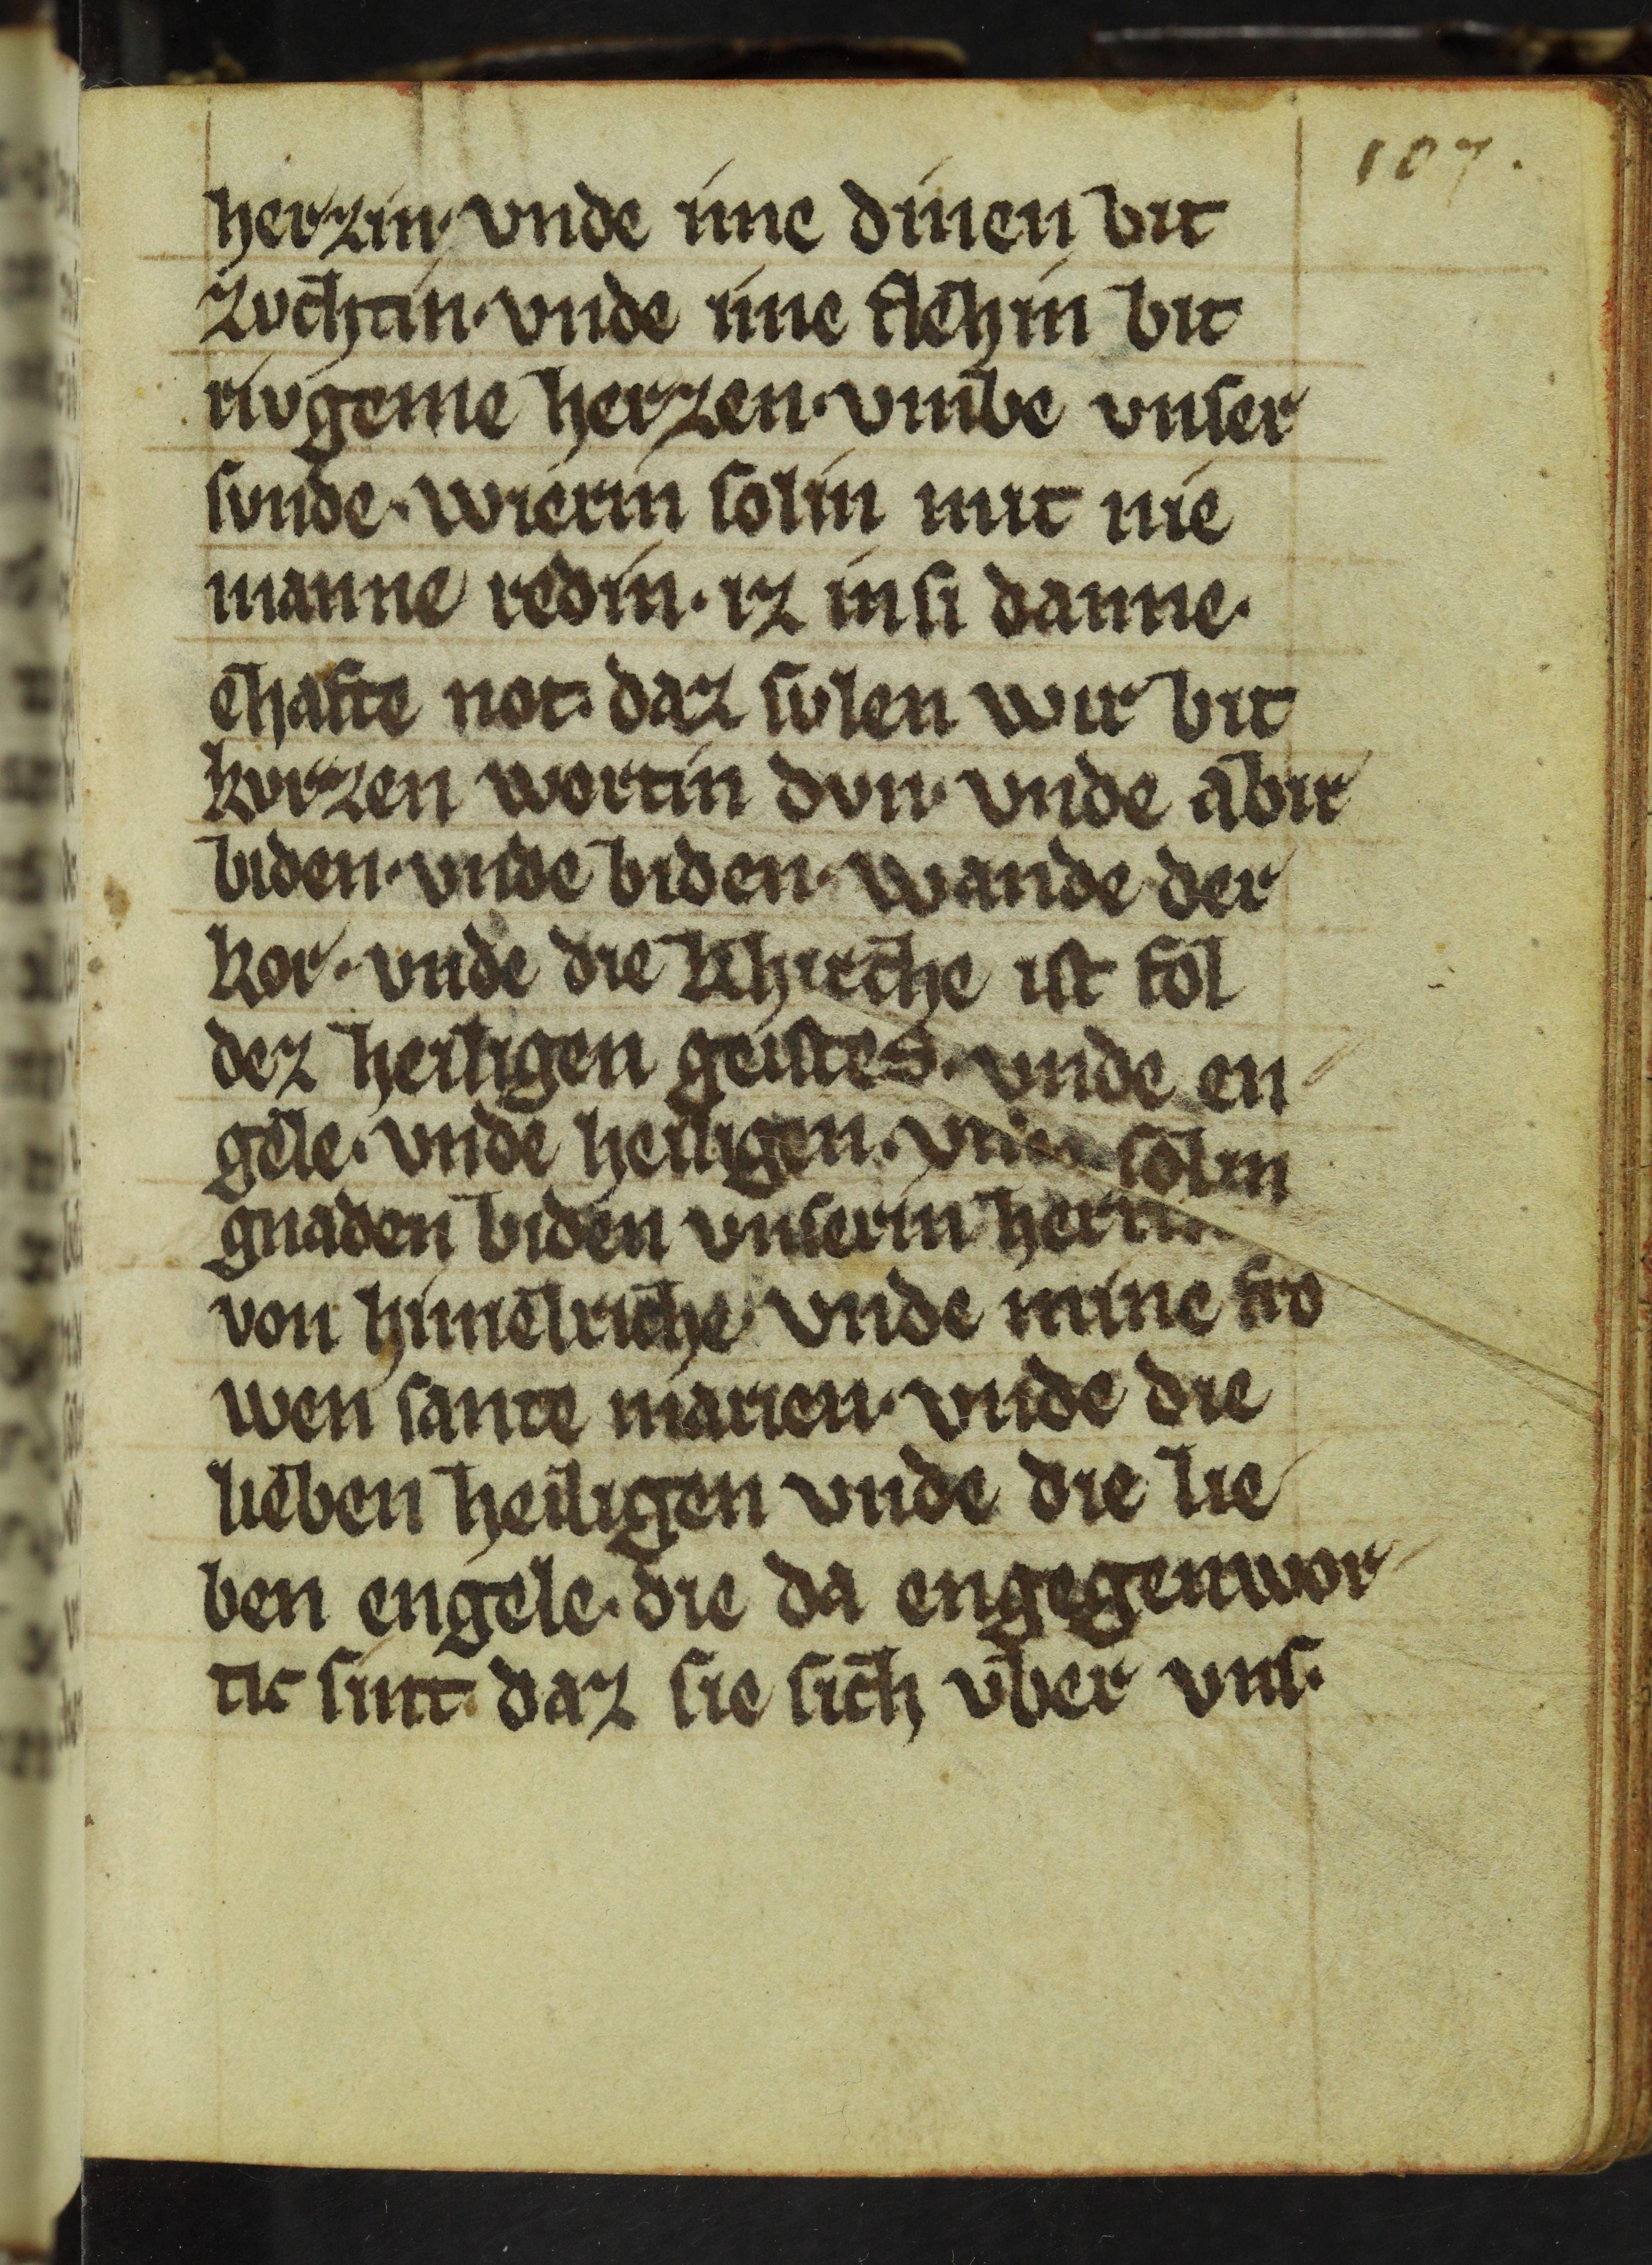 107.
herzin· vnde ime dinen bit
zvchtin· vnde ime flehin bit
rivgeme herzen· vmbe vnser
svnde· wierin solin mit nie
manne redin· iz insi danne·
ehafte not· daz svlen wir bit
kvrzen wortin dvn· vnde abir
biden· vnde biden· wande der
kor· vnde die khirche ist fol
dez heiligen geistes· vnde en
gele· vnde heiligen· solin
gnaden biden vnserin
von himelriche· vnde mine fro
wen sante marien· vnde die
lieben heiligen vnde die lie
ben engele· die da engegenwor
tic sint· daz sie sich vber vns·